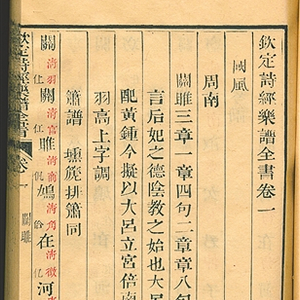 欽定詩經樂譜全書卷一
國風
周南
關雎三章一章四句二章章八句
言后妃之德陰教之始也大呂
配黃鍾今擬以大呂立宮倍南
羽高上字調
簫譜 壎箎排簫同
關清羽關清宮雎清商鳩清角在清徵河
欽定詩經樂譜全書 卷一 關雎